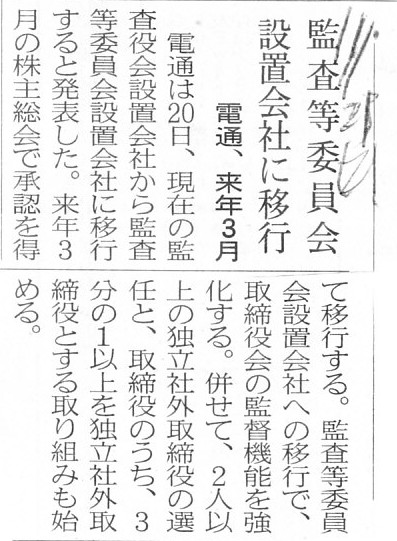 監査等委員会
設置会社に移行
電通、来年3月
電通は20日、現在の監
査役会設置会社から監査
等委員会設置会社に移行
すると発表した。来年3
月の株主総会で承認を得
て移行する。監査等委員
会設置会社への移行で、
取締役会の監督機能を強
化する。併せて、2人以
上の独立社外取締役の選
任と、取締役のうち、3
分の1以上を独立社外取
締役とする取り組みも始
める。